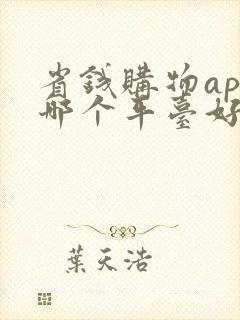 省钱購物ap
哪个平臺好
葉天浩